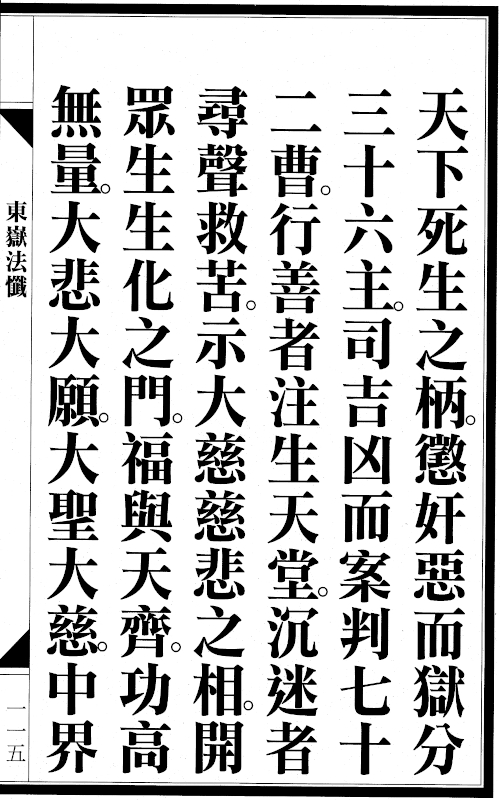 天下死生之柄。懲奸惡而獄分
三十六主。司吉凶而案判七十
二曹。行善者注生天堂。沉迷者
尋聲救苦。示大慈慈悲之相。開
眾生生化之門。福與天齊。功高
無量。大悲大願。大聖大慈。中界
東嶽法懺
一一五